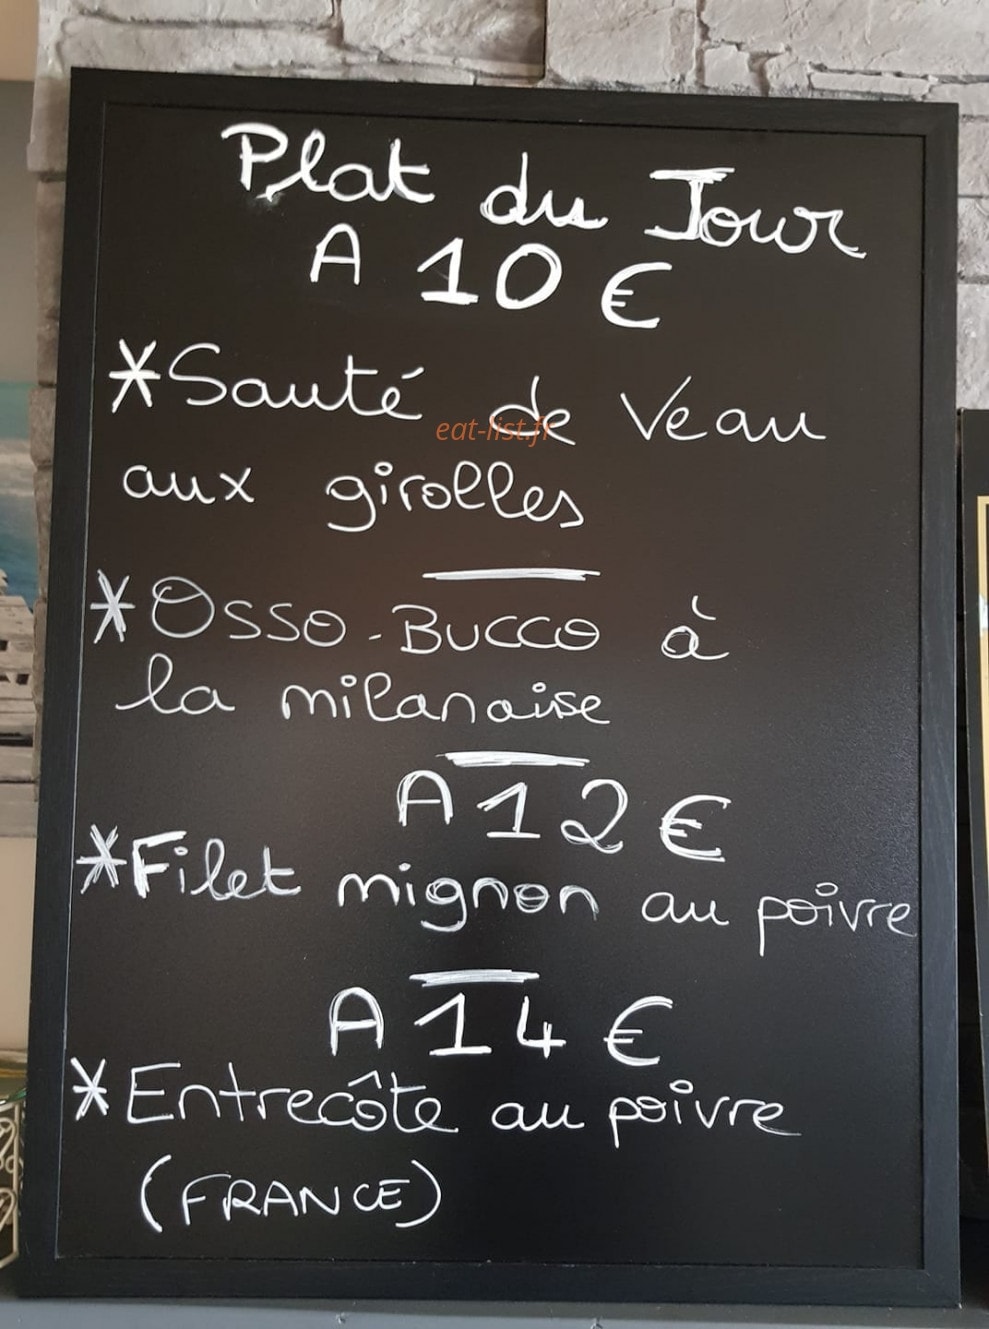 Plat du Jour
A 10 €
*Sauté de Veau
eat-list.fr
aux girolles
*Osso-Bucco à
la milanaise
A 12 €
*Filet mignon au poivre
A 14 €
*Entrecôte au poivre
(FRANCE)